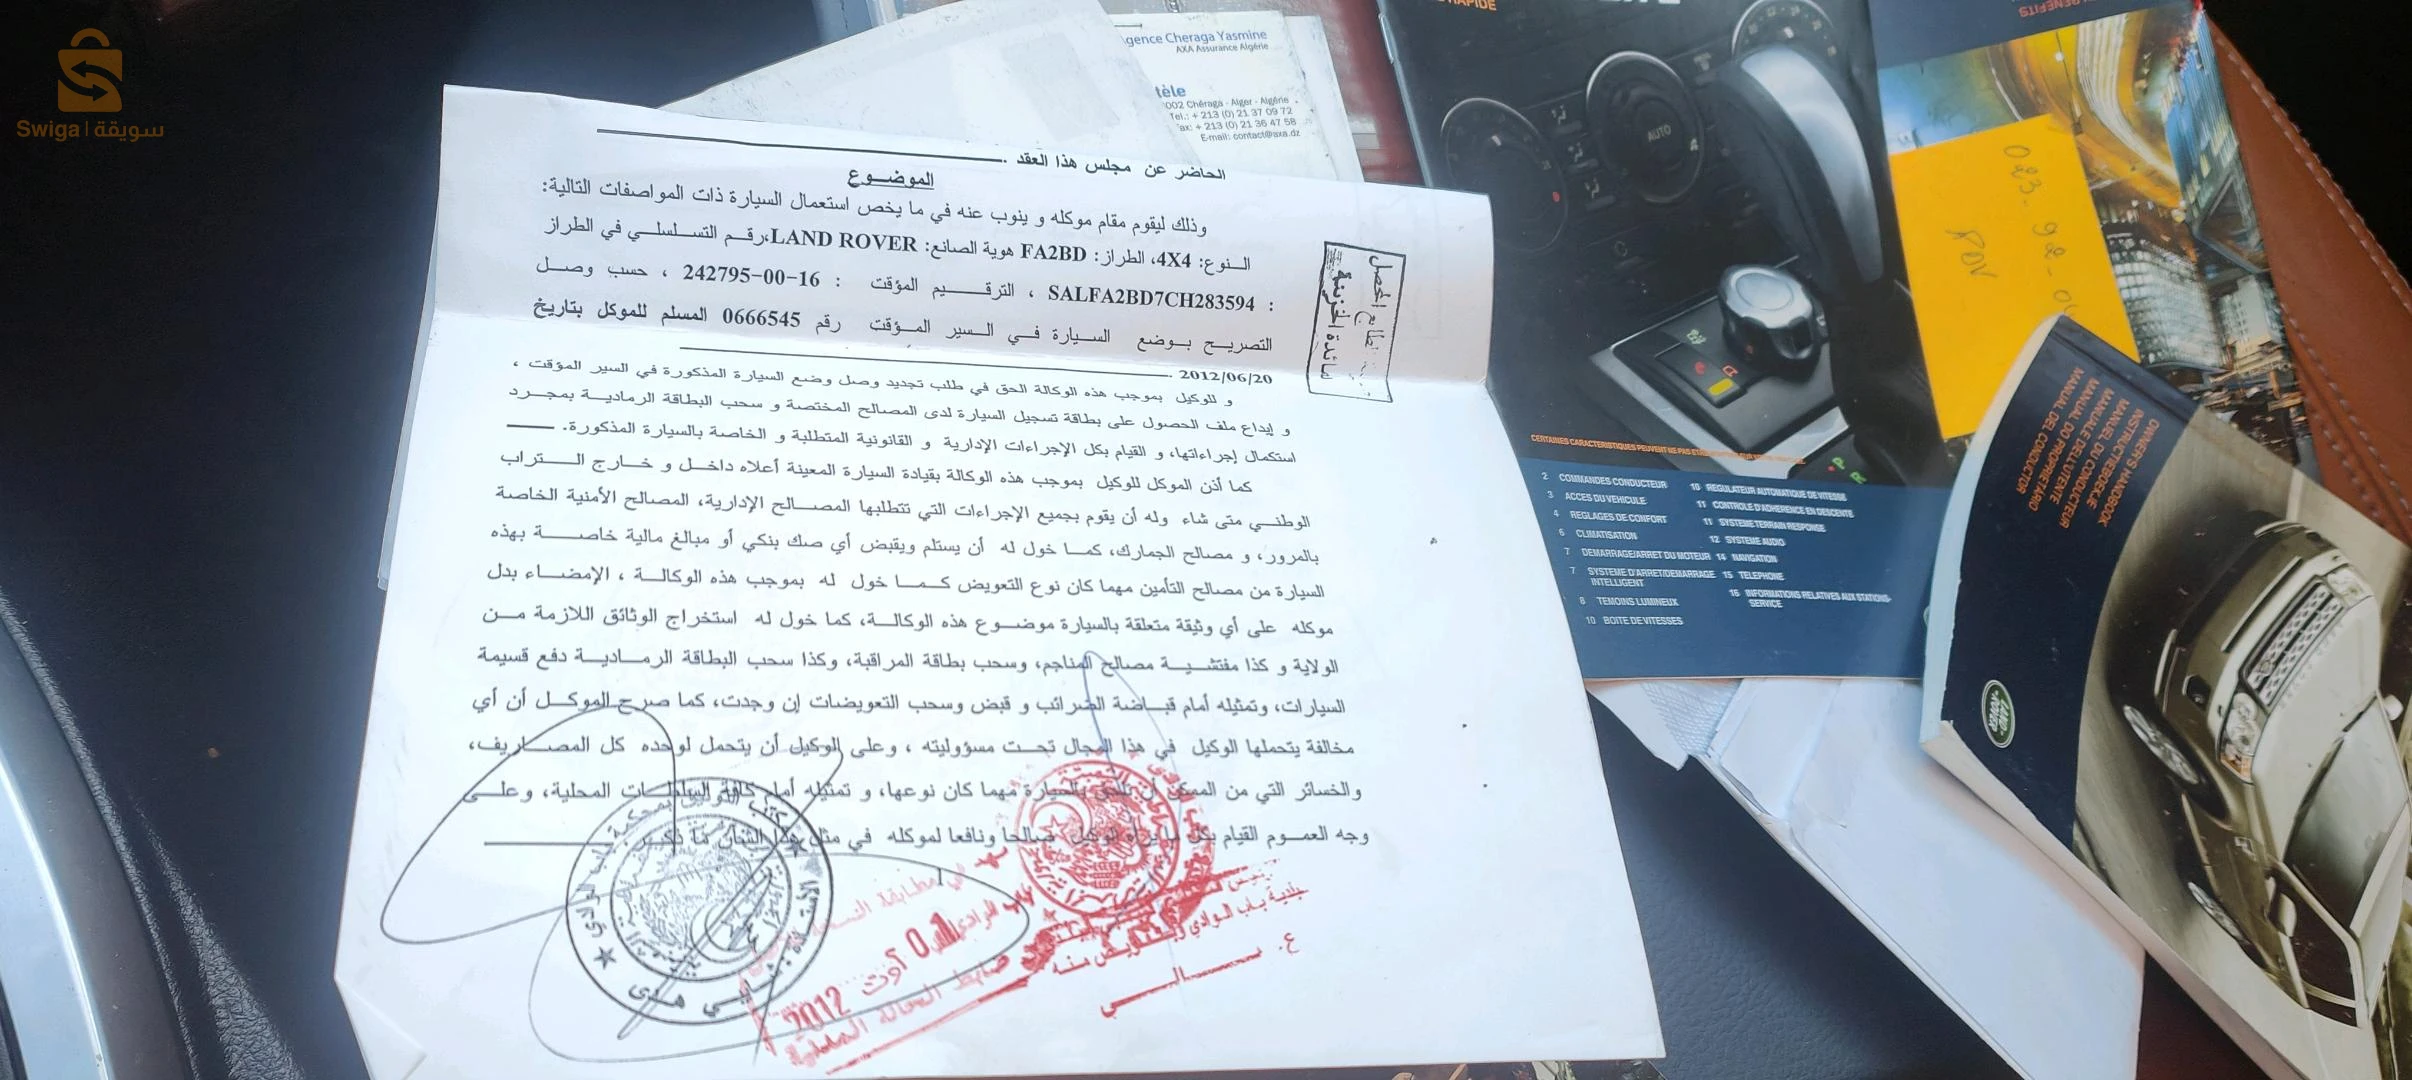 Swiga | سويقة
gence Cheraga Yasmine
AXA Assurance Algérie
tèle
002 Chéraga - Alger - Algérie
Tel.: + 213 (0) 21 37 09 72
Fax: + 213 (0) 21 36 47 58
E-mail: contact@axa.dz
الحاضر عن مجلس هذا العقد .
الموضــوع
وذلك ليقوم مقام موكله و ينوب عنه في ما يخص استعمال السيارة ذات المواصفات التالية:
النوع: 4X4، الطراز: FA2BD هوية الصانع: LAND ROVER،رقم التسلسلي في الطراز
: SALFA2BD7CH283594 ، الترقيم المؤقت : 16-00-242795 ، حسب وصل
التصريح بوضع السيارة في السير المؤقت رقم 0666545 المسلم للموكل بتاريخ
2012/06/20 .
و للوكيل بموجب هذه الوكالة الحق في طلب تجديد وصل وضع السيارة المذكورة في السير المؤقت ،
و إيداع ملف الحصول على بطاقة تسجيل السيارة لدى المصالح المختصة و سحب البطاقة الرمادية بمجرد
استكمال إجراءاتها، و القيام بكل الإجراءات الإدارية و القانونية المتطلبة و الخاصة بالسيارة المذكورة.
كما أذن الموكل للوكيل بموجب هذه الوكالة بقيادة السيارة المعينة أعلاه داخل و خارج التراب
الوطني متى شاء وله أن يقوم بجميع الإجراءات التي تتطلبها المصالح الإدارية، المصالح الأمنية الخاصة
بالمرور، و مصالح الجمارك، كما خول له أن يستلم ويقبض أي صك بنكي أو مبالغ مالية خاصة بهذه
السيارة من مصالح التأمين مهما كان نوع التعويض كما خول له بموجب هذه الوكالة ، الإمضاء بدل
موكله على أي وثيقة متعلقة بالسيارة موضوع هذه الوكالة، كما خول له استخراج الوثائق اللازمة من
الولاية و كذا مفتشية مصالح المناجم، وسحب بطاقة المراقبة، وكذا سحب البطاقة الرمادية دفع قسيمة
السيارات، وتمثيله أمام قباضة الضرائب و قبض وسحب التعويضات إن وجدت، كما صرح الموكل أن أي
مخالفة يتحملها الوكيل في هذا المجال تحت مسؤوليته ، وعلى الوكيل أن يتحمل لوحده كل المصاريف،
والخسائر التي من الممكن أن تلحق بالسيارة مهما كان نوعها، و تمثيله أمام كافة السلطات المحلية، وعلى
وجه العموم القيام بكل ما يراه الوكيل صالحا ونافعا لموكله في مثل هذا الشأن ما ذكر
01 أوت 2012
ضابط الحالة المدنية
بلدية باب الوادي وبتفويض منه
RAPIDE
AUTO
CERTAINES CARACTERISTIQUES PEUVENT NE PAS
2 COMMANDES CONDUCTEUR
3 ACCES DU VEHICULE
4 REGLAGES DE CONFORT
6 CLIMATISATION
7 DEMARRAGE/ARRET DU MOTEUR
7 SYSTEME D'ARRET/DEMARRAGE
INTELLIGENT
8 TEMOINS LUMINEUX
10 BOITE DE VITESSES
10 REGULATEUR AUTOMATIQUE DE VITESSE
11 CONTROLE D'ADHERENCE EN DESCENTE
11 SYSTEME TERRAIN RESPONSE
12 SYSTEME AUDIO
14 NAVIGATION
15 TELEPHONE
16 INFORMATIONS RELATIVES AUX STATIONS-
SERVICE
BENEFITS
023 - 98 - 0
RDV
OWNER'S HANDBOOK
INSTRUCTIEBOEKJE
MANUEL DU CONDUCTEUR
MANUALE DELL'UTENTE
MANUAL DO PROPRIETÁRIO
MANUAL DEL CONDUCTOR
LAND ROVER